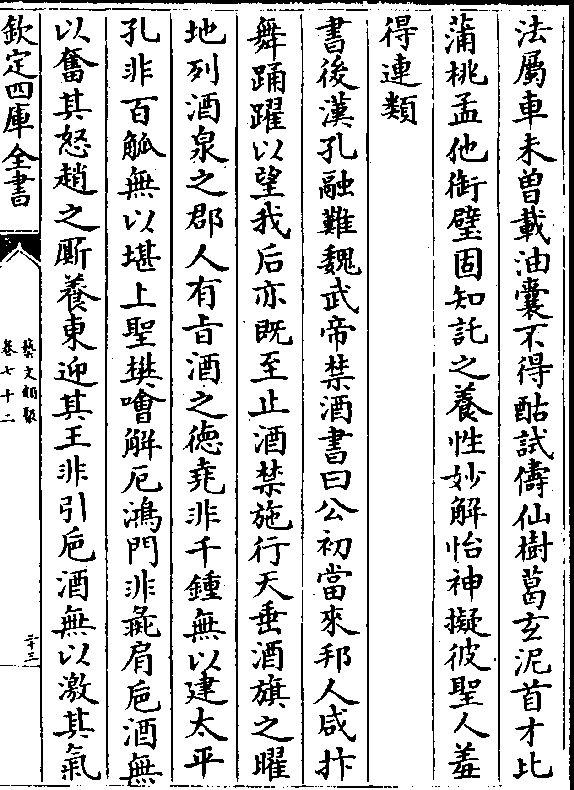 法屬車未曽載油囊不得酤試儔仙樹葛玄泥首才比
蒲桃孟他銜璧固知託之養性妙解怡神擬彼聖人羞
得連類
書後漢孔融難魏武帝禁酒書曰公初當來邦人咸抃
舞踊躍以望我后亦既至止酒禁施行天垂酒旗之曜
地列酒泉之郡人有㫖酒之徳堯非千鍾無以建太平
孔非百觚無以堪上聖樊噲解厄鴻門非彘肩巵酒無
以奮其怒趙之厮養東迎其王非引巵酒無以激其氣
欽定四庫全書
藝文類聚
卷七十二
二十三